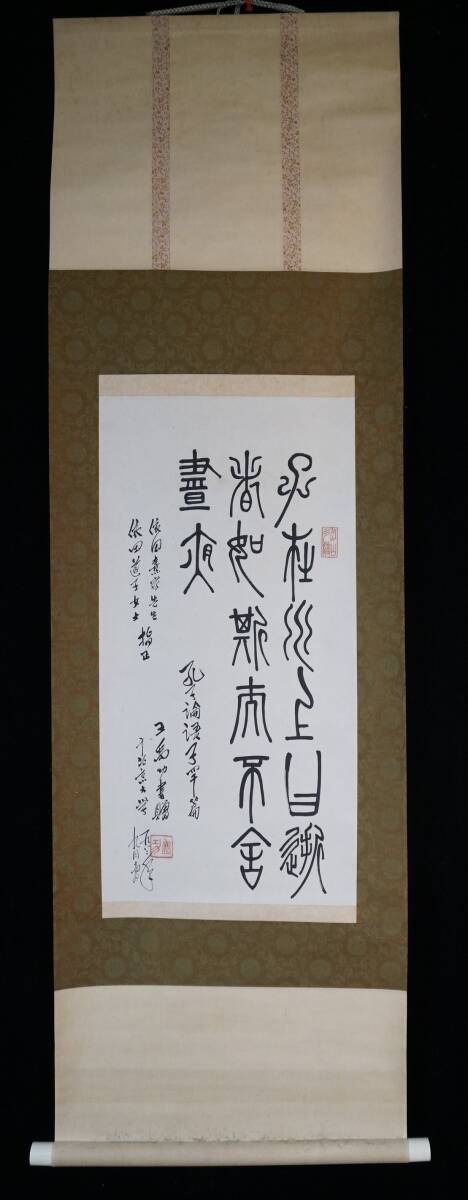 子在川上曰逝
者如斯夫不舍
晝夜
孔子論語子罕篇
依田憙家先生
依田 子女士 指正
王 功書贈
于北京大學